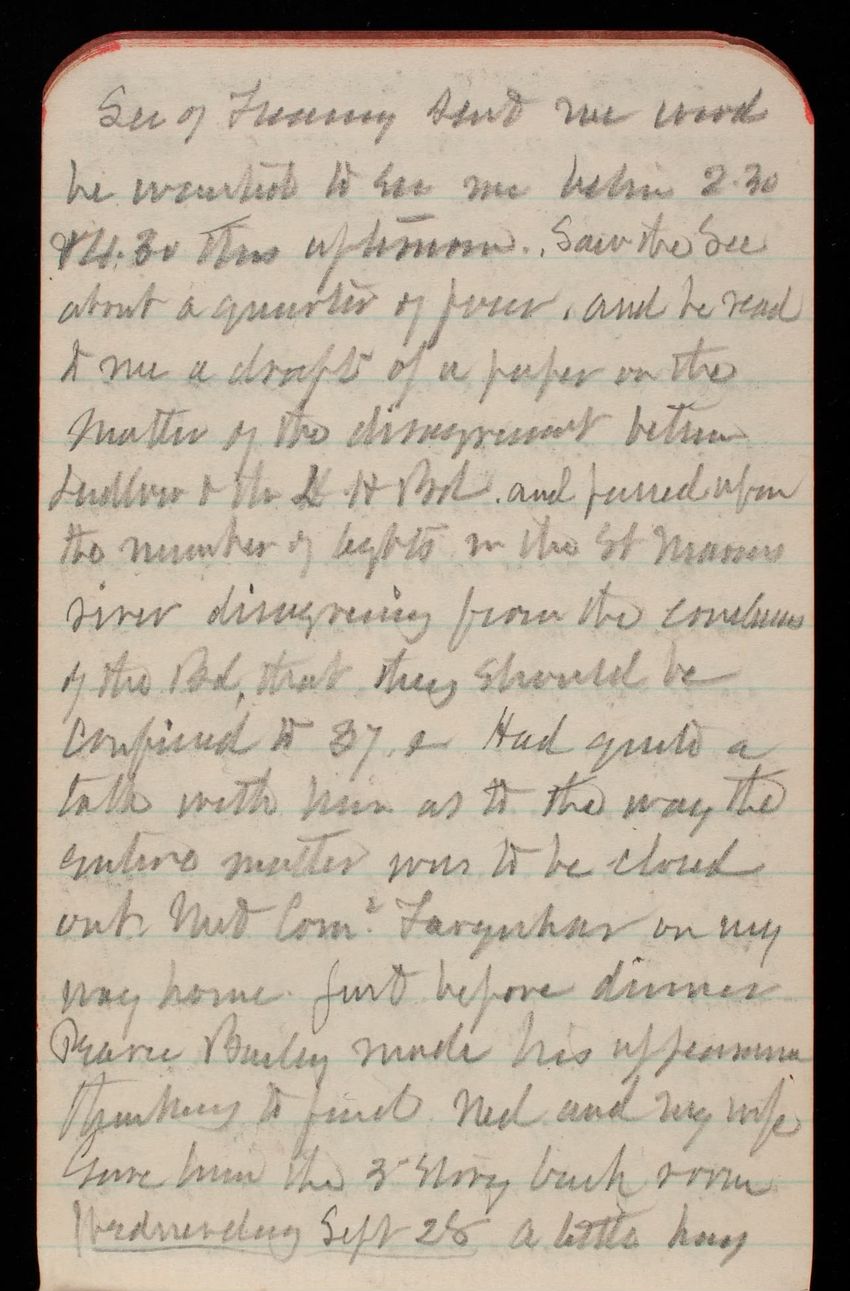 Sec of Treasury sent me word
he wanted to see me between 2.30
& 4.30 this afternoon. Saw the Sec
about a quarter of four, and he read
to me a draft of a paper on the
matter of the disagreement between
Ludlow & the L H Bd. and passed upon
the number of lights in the St Marys
river disagreeing from the conclusions
of the Bd, that they should be
confined to 37. Had quite a
talk with him as to the way the
entire matter was to be closed
out. Met Comr. Farquhar on my
way home. Just before dinner
Pearce Bailey made his appearance
thinking to find Ned and my wife
Gave him the 3d story back room
Wednesday Sept 28 A little hazy